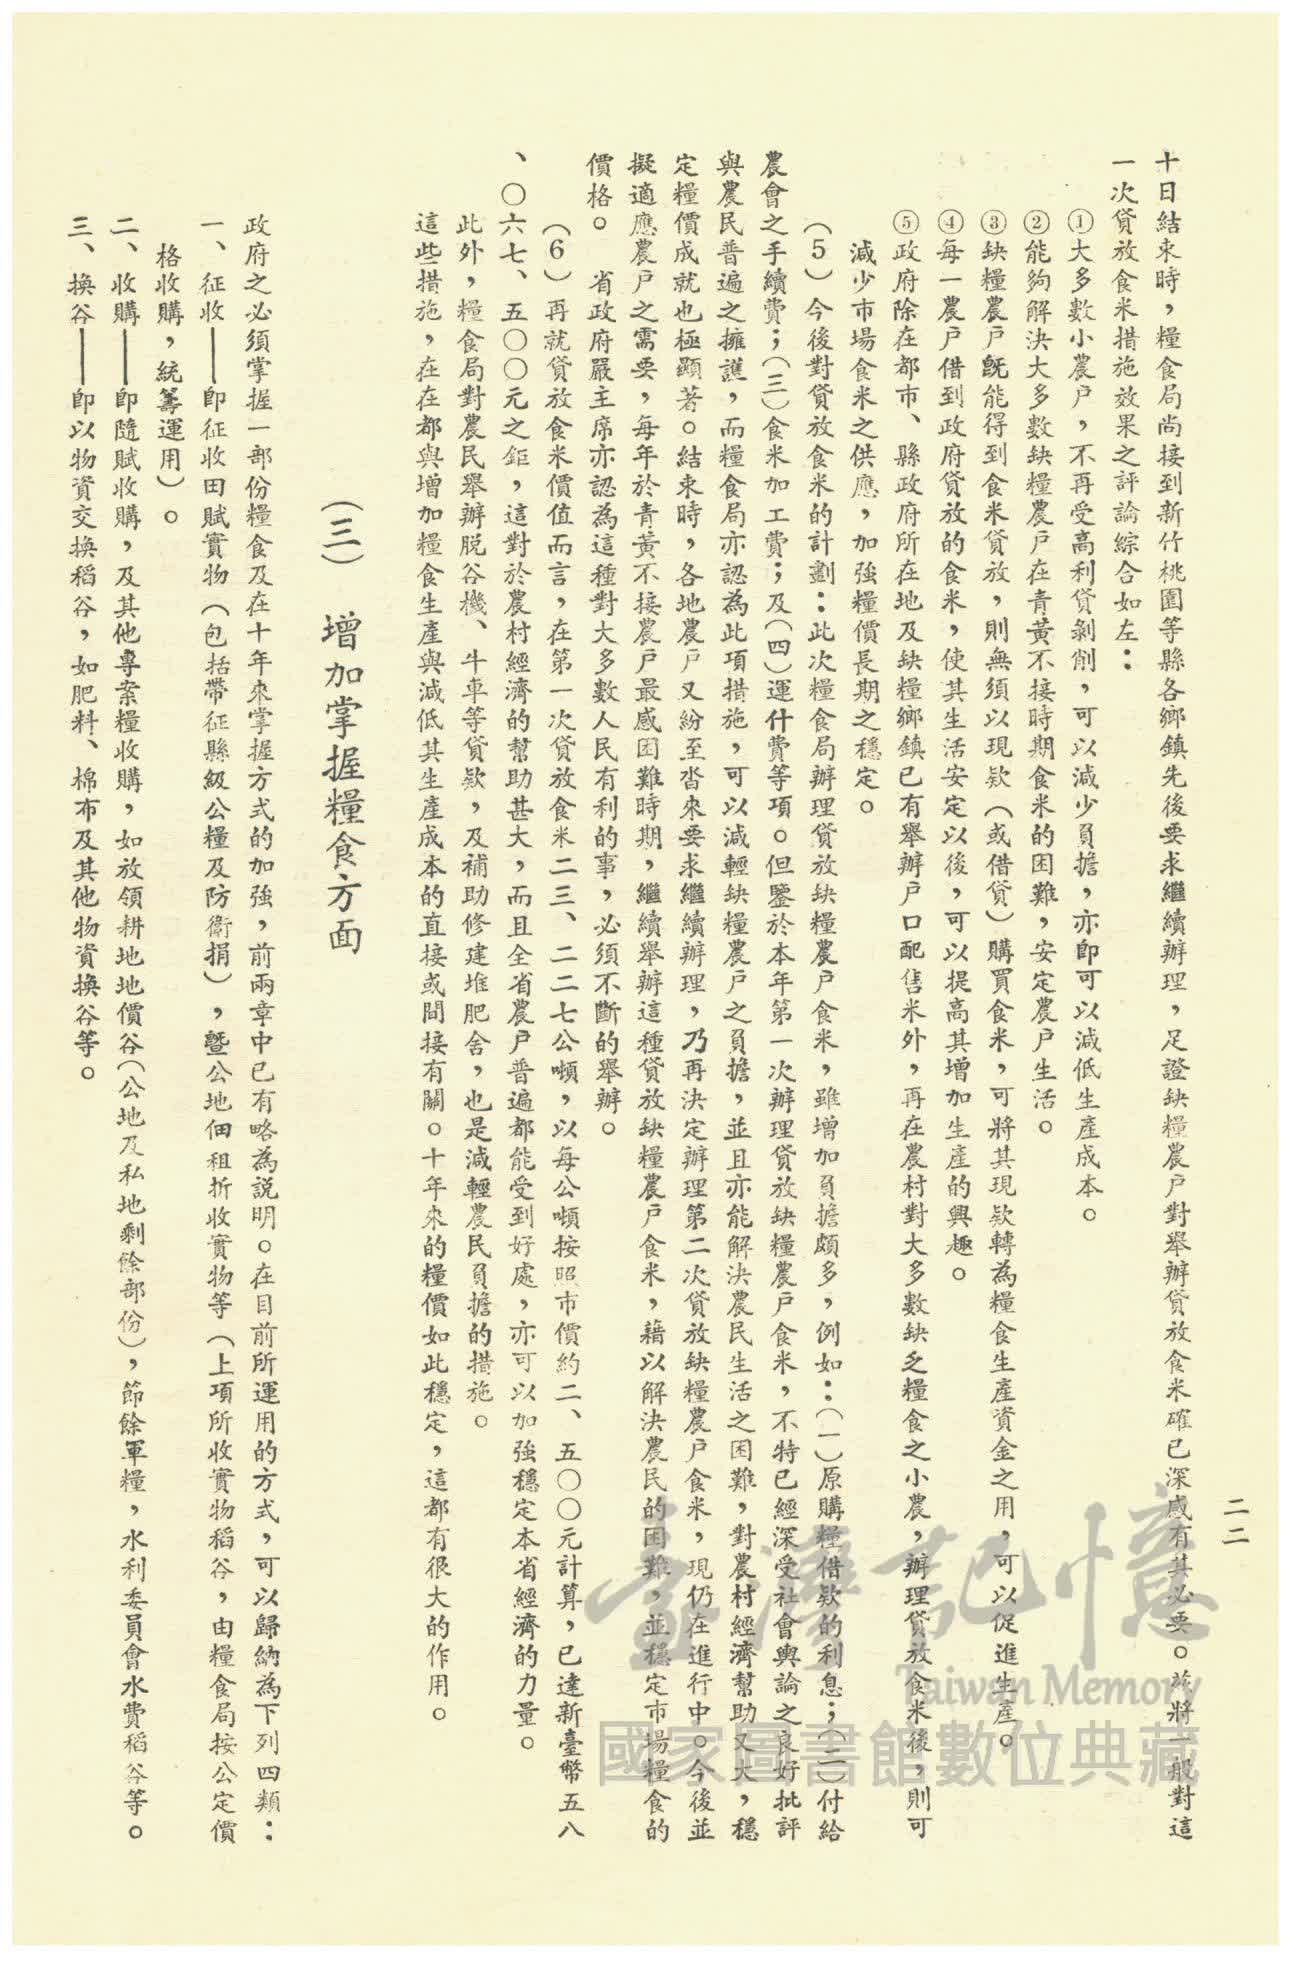 二二
十日結束時，糧食局尚接到新竹桃園等縣各鄉鎮先後要求繼續辦理，足證缺糧農戶對舉辦貸放食米確已深感有其必要。茲將一般對這
一次貸放食米措施效果之評論綜合如左：
①大多數小農戶，不再受高利貸剝削，可以減少負擔，亦即可以減低生產成本。
②能夠解決大多數缺糧農戶在青黃不接時期食米的困難，安定農戶生活。
③缺糧農戶既能得到食米貸放，則無須以現款（或借貸）購買食米，可將其現款轉為糧食生產資金之用，可以促進生產。
④每一農戶借到政府貸放的食米，使其生活安定以後，可以提高其增加生產的興趣。
⑤政府除在都市、縣政府所在地及缺糧鄉鎮已有舉辦戶口配售米外，再在農村對大多數缺乏糧食之小農，辦理貸放食米後，則可
減少市場食米之供應，加強糧價長期之穩定。
（5）今後對貸放食米的計劃：此次糧食局辦理貸放缺糧農戶食米，雖增加負擔頗多，例如：（一）原購糧借款的利息；（二）付給
農會之手續費；（三）食米加工費；及（四）運什費等項。但鑒於本年第一次辦理貸放缺糧農戶食米，不特已經深受社會輿論之良好批評
與農民普遍之擁護，而糧食局亦認為此項措施，可以減輕缺糧農戶之負擔，並且亦能解決農民生活之困難，對農村經濟幫助又大，穩
定糧價成就也極顯著。結束時，各地農戶又紛至沓來要求繼續辦理，乃再決定辦理第二次貸放缺糧農戶食米，現仍在進行中。今後並
擬適應農戶之需要，每年於青黃不接農戶最感困難時期，繼續舉辦這種貸放缺糧農戶食米，藉以解決農民的困難，並穩定市場糧食的
價格。　省政府嚴主席亦認為這種對大多數人民有利的事，必須不斷的舉辦。
（6）再就貸放食米價值而言，在第一次貸放食米二三、二二七公噸，以每公噸按照市價約二、五〇〇元計算，已達新臺幣五八
、〇六七、五〇〇元之鉅，這對於農村經濟的幫助甚大，而且全省農戶普遍都能受到好處，亦可以加強穩定本省經濟的力量。
此外，糧食局對農民舉辦脫谷機、牛車等貸款，及補助修建堆肥舍，也是減輕農民負擔的措施。
這些措施，在在都與增加糧食生產與減低其生產成本的直接或間接有關。十年來的糧價如此穩定，這都有很大的作用。
（三）　增加掌握糧食方面
政府之必須掌握一部份糧食及在十年來掌握方式的加強，前兩章中已有略為說明。在目前所運用的方式，可以歸納為下列四類：
一、征收——即征收田賦實物（包括帶征縣級公糧及防衛捐），暨公地佃租折收實物等（上項所收實物稻谷，由糧食局按公定價
格收購，統籌運用）。
二、收購——即隨賦收購，及其他專案糧收購，如放領耕地地價谷（公地及私地剩餘部份），節餘軍糧，水利委員會水費稻谷等。
三、換谷——即以物資交換稻谷，如肥料、棉布及其他物資換谷等。
臺灣記憶
Taiwan Memory
國家圖書館數位典藏